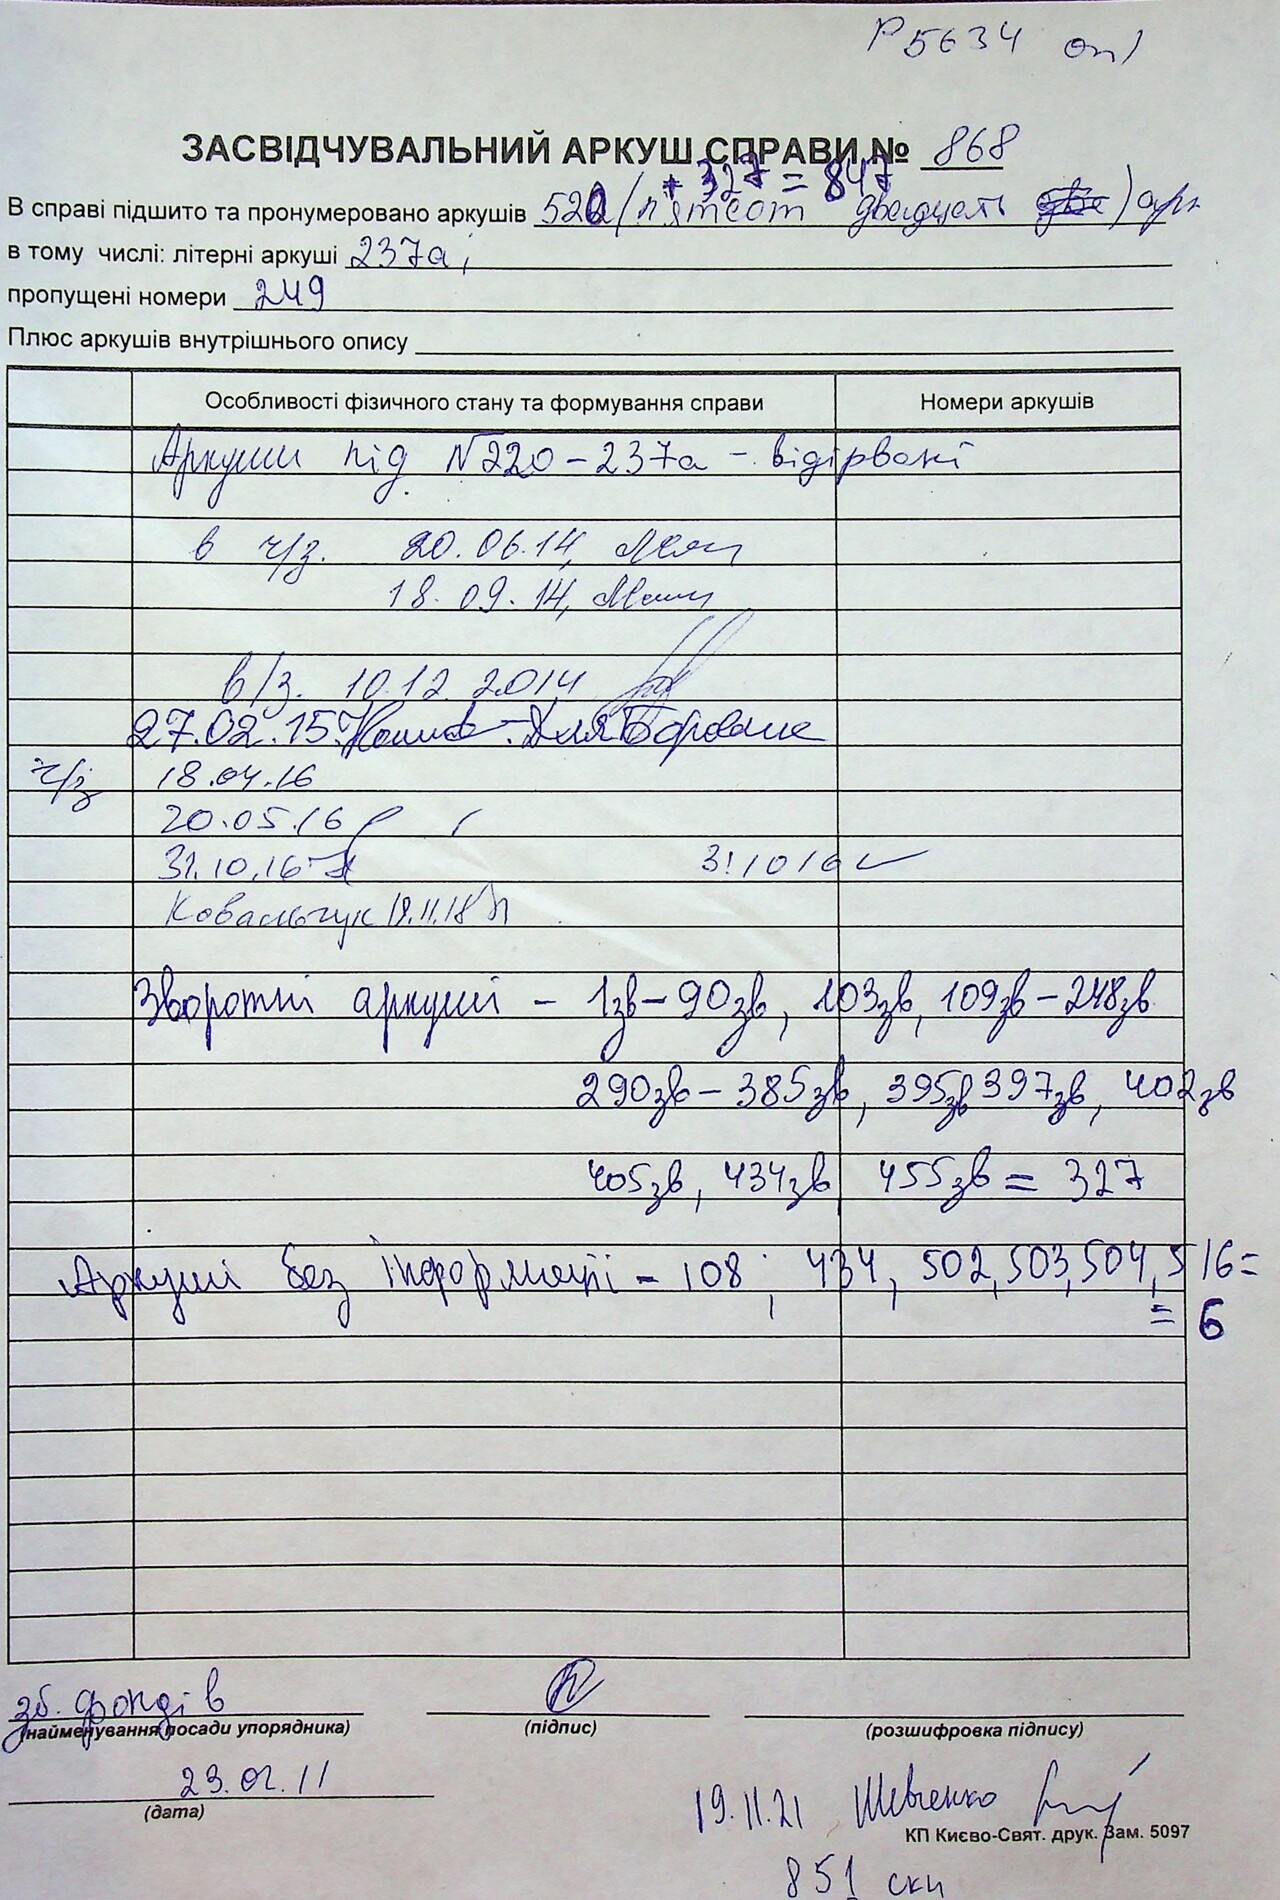 Р5634 оп1
ЗАСВІДЧУВАЛЬНИЙ АРКУШ СПРАВИ № 868
+ 327 = 847
В справі підшито та пронумеровано аркушів 520 (пятсот двадцять ) арк
в тому числі: літерні аркуші 237а,
пропущені номери 249
Плюс аркушів внутрішнього опису
Особливості фізичного стану та формування справи Номери аркушів
Аркуши під №220-237а - відірвані
в ч/з. 20.06.14,
18.09.14,
в/з. 10.12.2014
27.02.15. Для
ч/з 18.04.16
20.05.16
31.10.16 31 10 16
Ковальчук 19.11.18
Зворотні аркуші - 1зв-90зв, 103зв, 109зв-248зв
290зв-385зв, 395зв 397зв, 402зв
405зв, 434зв 455зв = 327
Аркуші без інформації - 108; 434, 502, 503, 504, 516=
= 6
зб. фондів
(найменування посади упорядника) (підпис) (розшифровка підпису)
23.02.11
(дата)
19.11.21 Шевченко
КП Києво-Свят. друк. Зам. 5097
851 скн